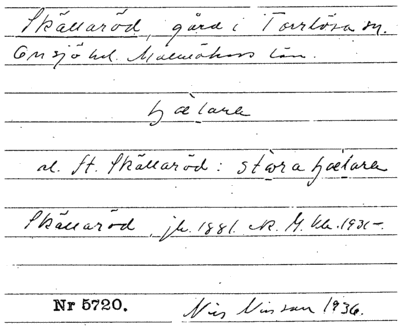 Skällaröd, gård i Torrlösa sn.
Onsjö hd. Malmöhus län.
hælara
al. St. Skällaröd: stora hælara
Skällaröd, jb. 1881. 1931-.
Nr 5720. Nils Nilsson 1936.